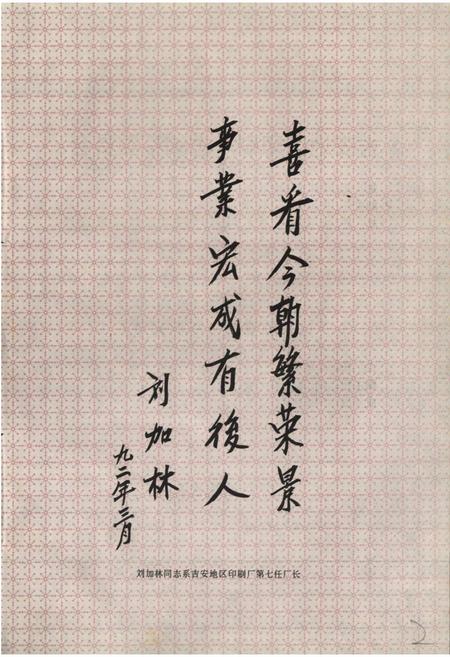 喜看今朝繁荣景
事業宏成有後人
刘加林
九二年三月
刘加林同志系吉安地区印刷厂第七任厂长
2